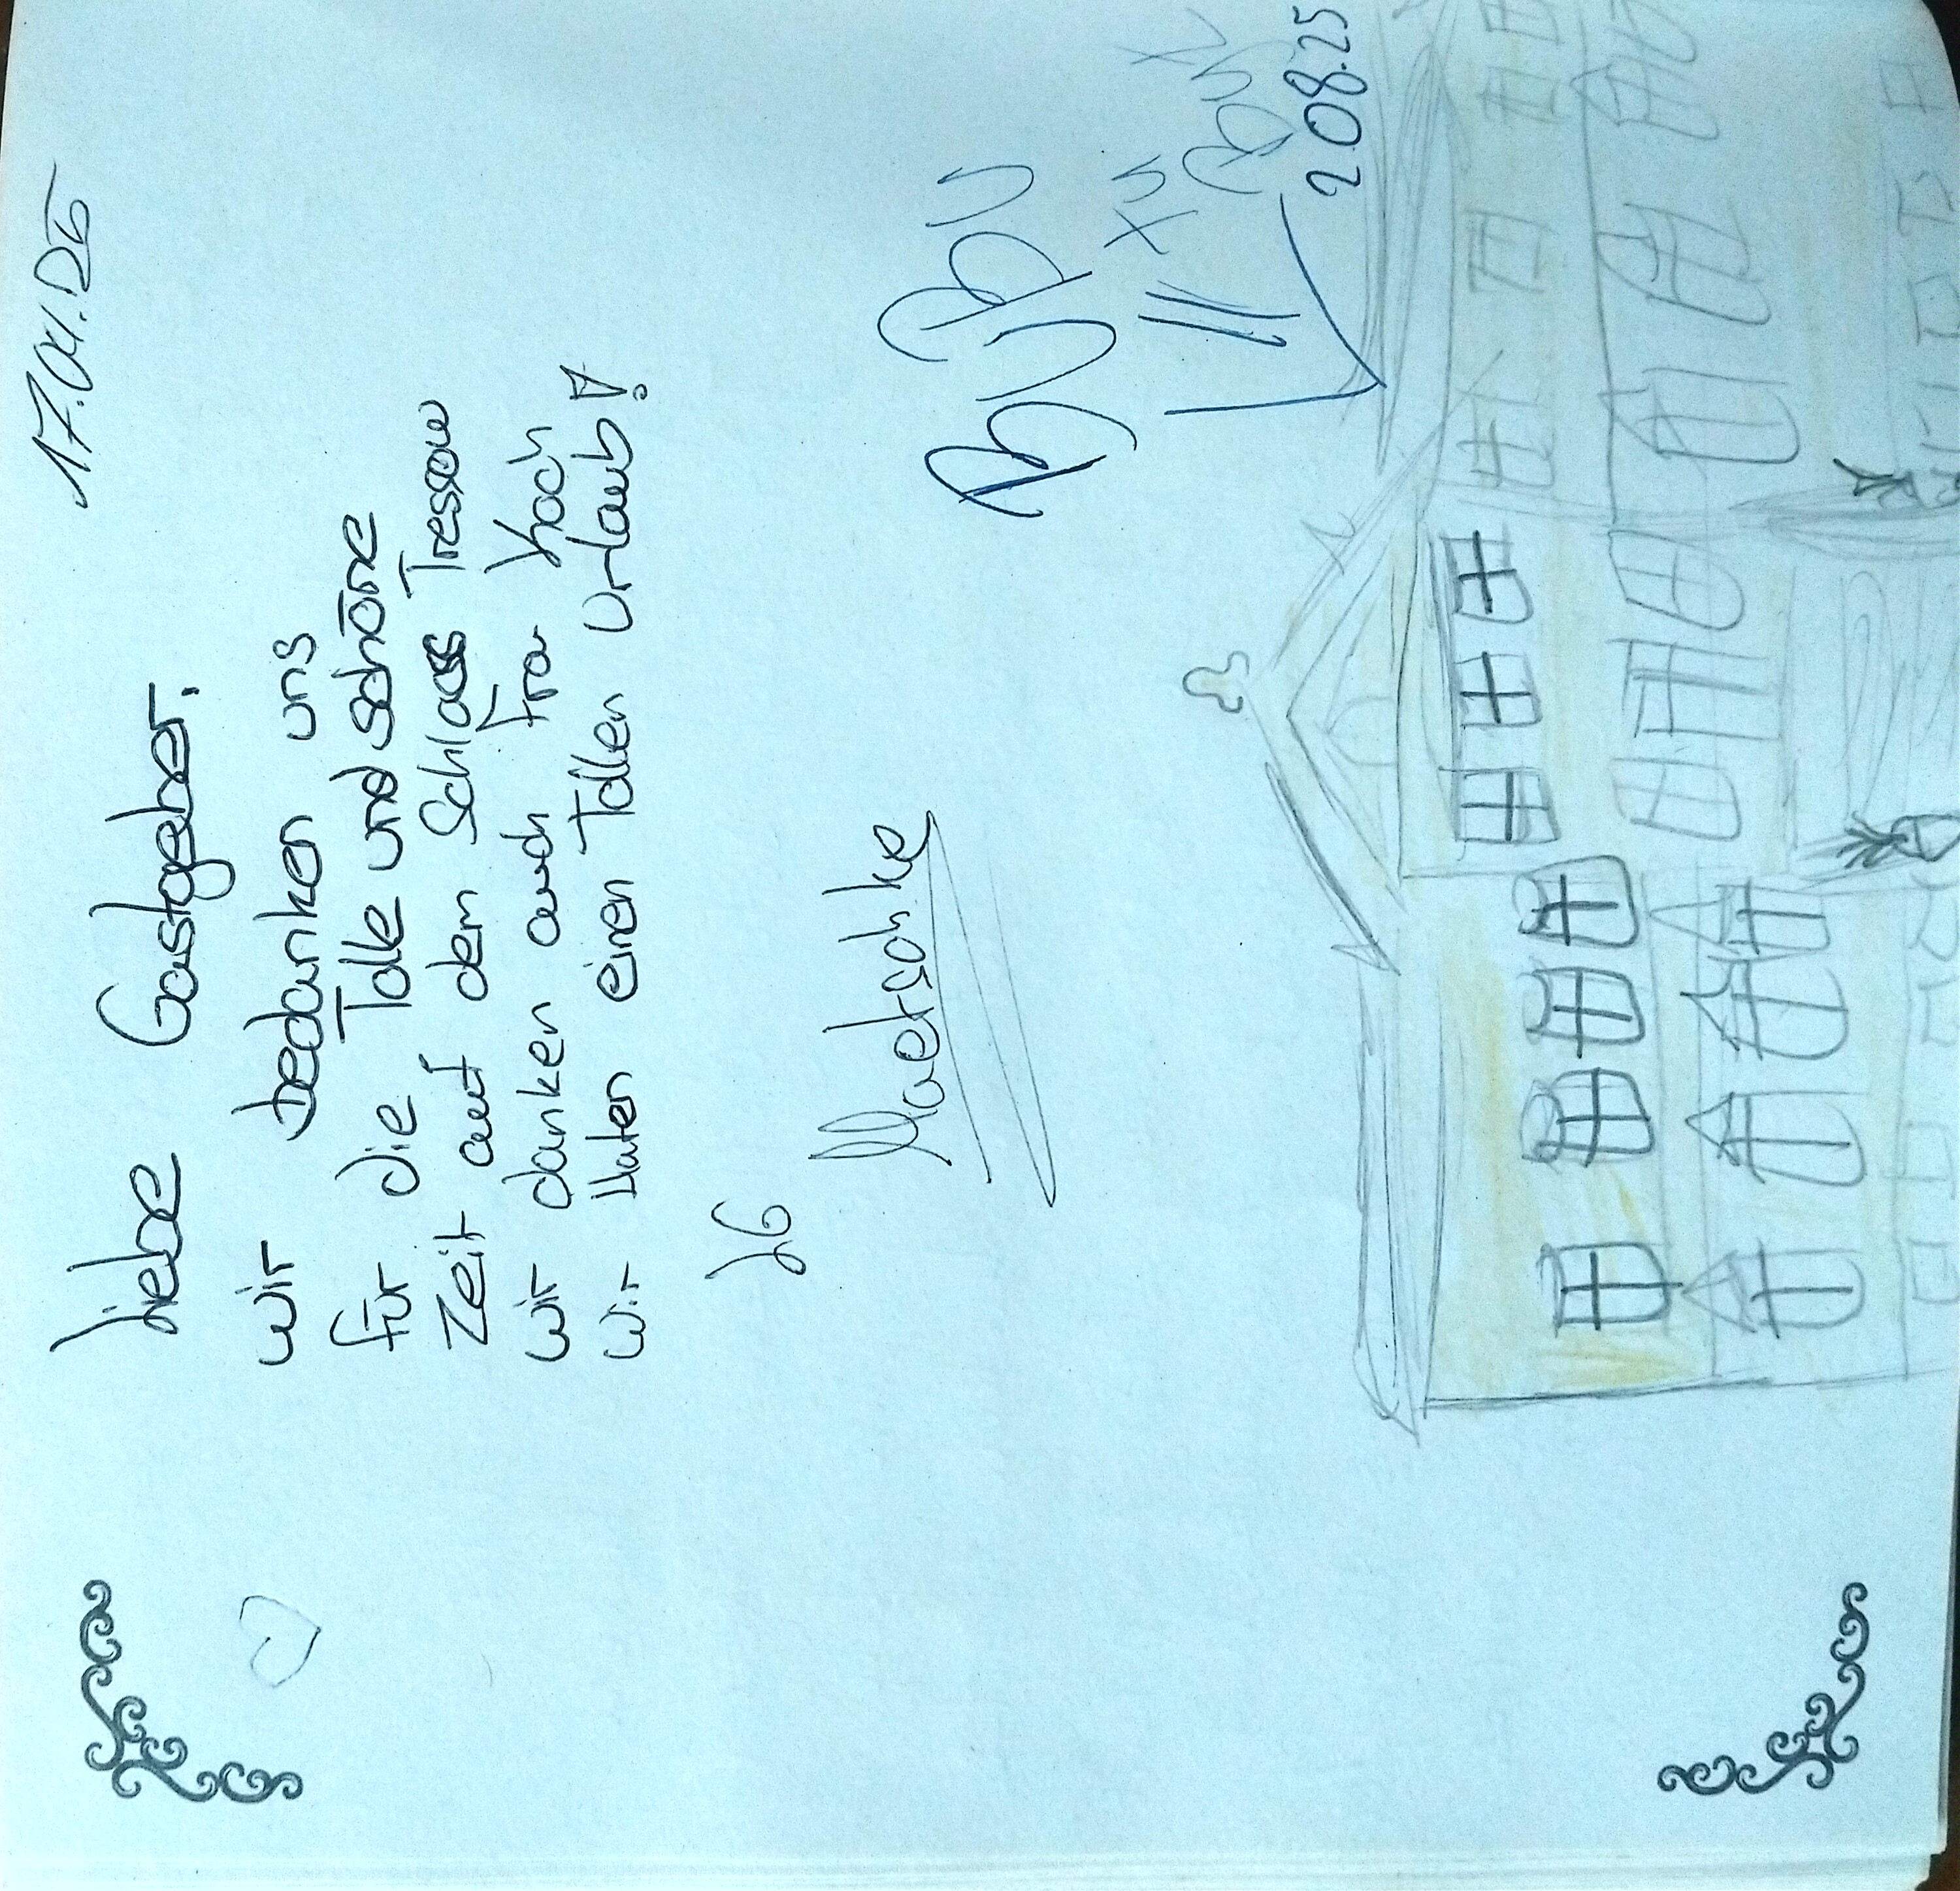 17.04.25
Liebe Gastgeber.
wir bedanken uns
für die Tolle und schöne
Zeit auf dem Schloss Tressow
wir danken auch Fra Koch
wir Haten einen Tollen Urlaub!
LG
2.08.25